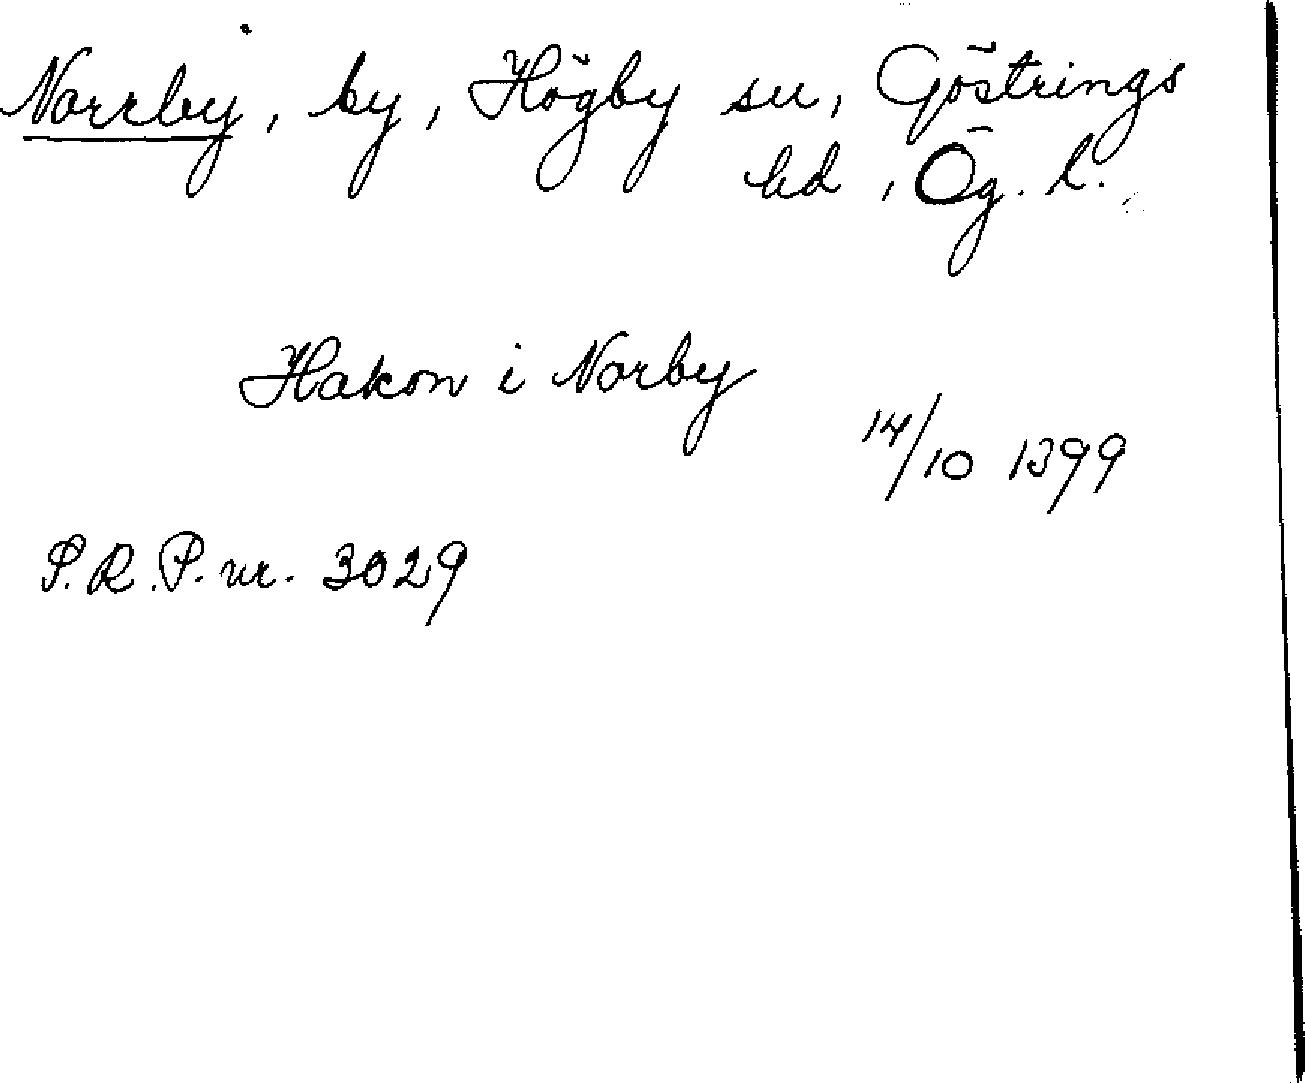 Norrby, by, Högby sn, Göstrings
hd, Ög. l.
Hakon i Norby
14/10 1399
P.R.P. nr. 3029